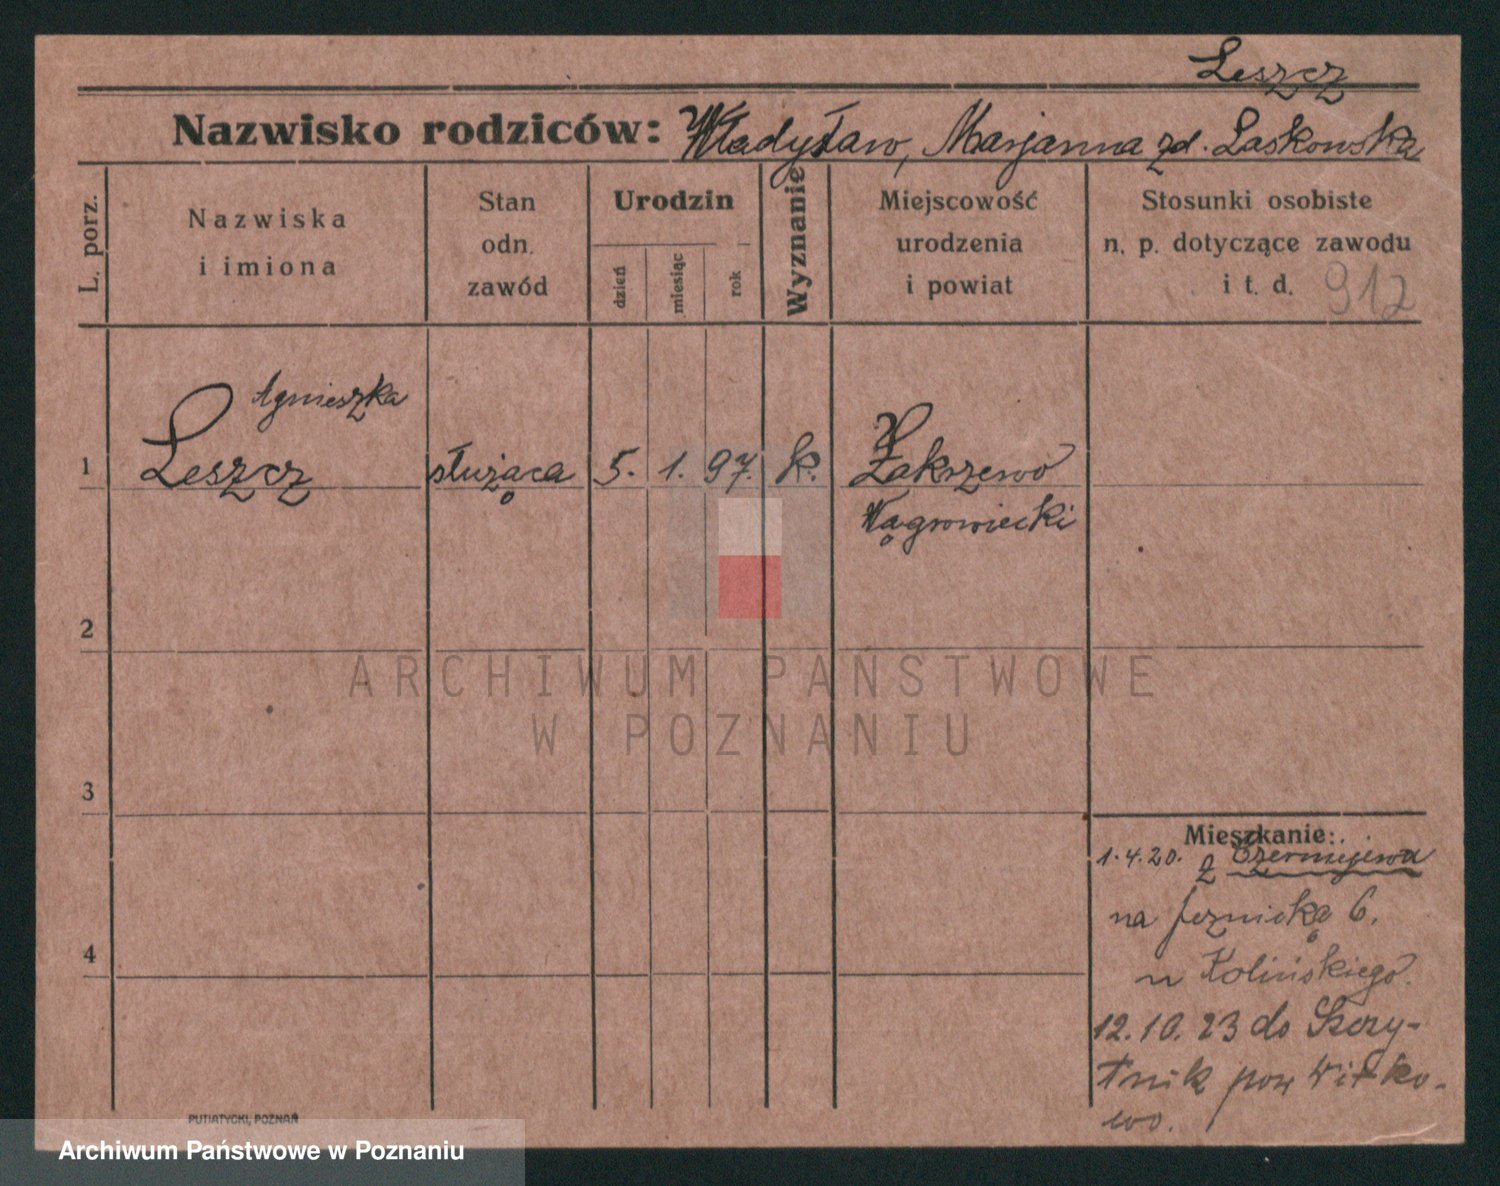 Leszcz
Nazwisko rodziców: Władysław, Marjanna zd. Laskowska
L. porz.
Nazwiska
i imiona
Stan
odn.
zawód
Urodzin
dzień
miesiąc
rok
Wyznanie
Miejscowość
urodzenia
i powiat
Stosunki osobiste
n. p. dotyczące zawodu
i t. d. 912
Agnieszka
1 Leszcz służąca 5. 1. 97. k. Zakrzewo
Wągrowiecki
2
3
4
ARCHIWUM PAŃSTWOWE
W POZNANIU
Mieszkanie:
1.4.20. z Czerniejewa
na Jeznicką 6.
u Kolińskiego.
12.10.23 do Szczy-
tnik pow Witko-
wo.
PUTIATYCKI, POZNAŃ
Archiwum Państwowe w Poznaniu